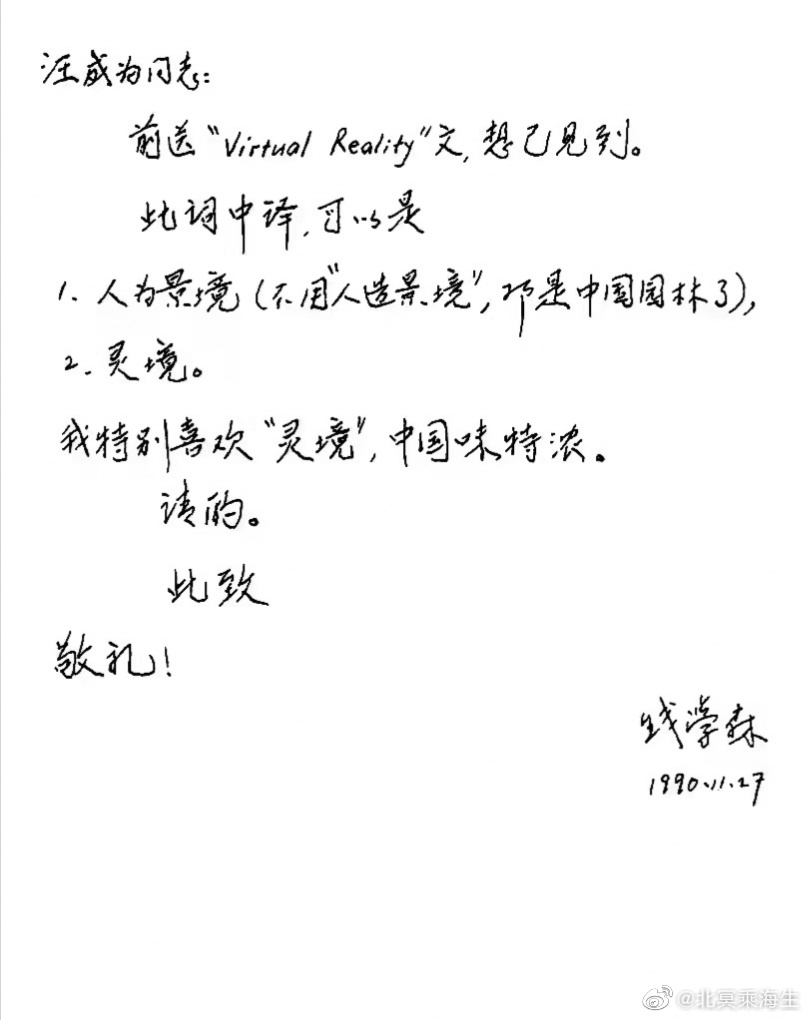 汪成为同志：
前送“Virtual Reality”文，想已见到。
此词中译，可以是
1. 人为景境（不用“人造景境”，那是中国园林了），
2. 灵境。
我特别喜欢“灵境”，中国味特浓。
请酌。
此致
敬礼！
钱学森
1990.11.27
@北冥乘海生